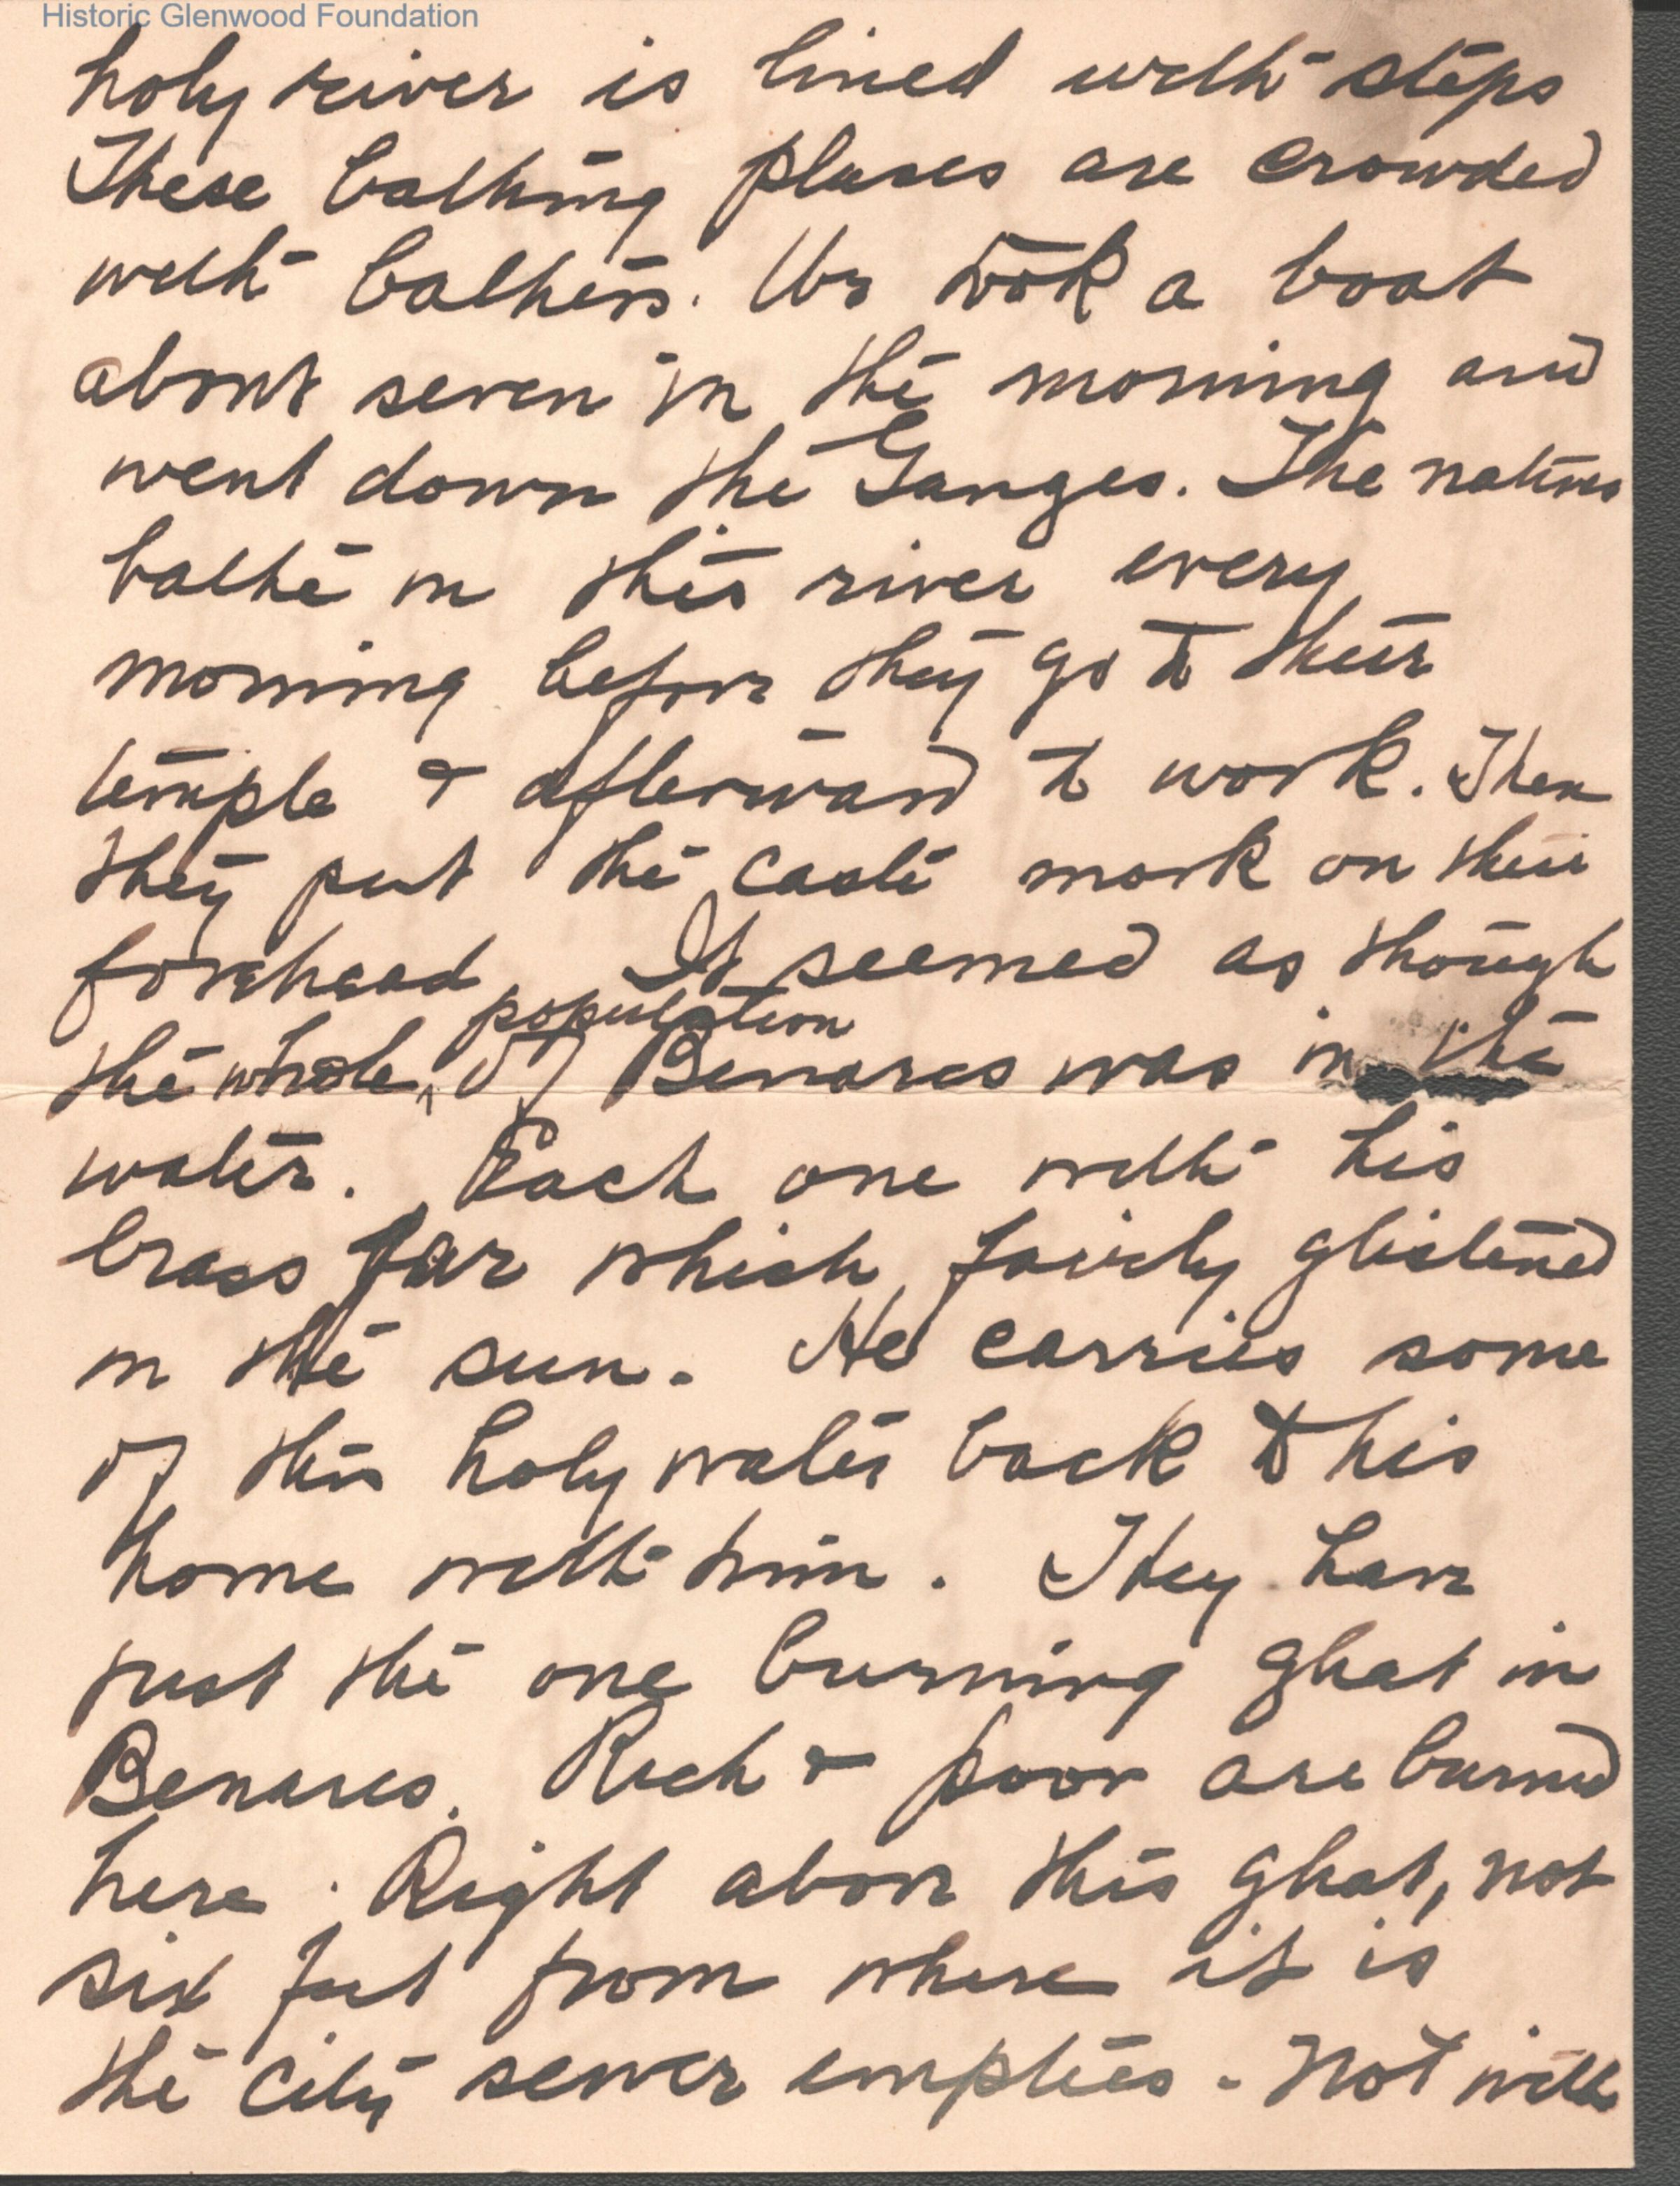 Historic Glenwood Foundation
holy river is lined with steps
These bathing places are crowded
with bathers. We took a boat
about seven in the morning and
went down the Ganges. The natives
bathe in this river every
morning before they go to their
temple & afterward to work. Then
they put the caste mark on their
forehead. It seemed as though
population
the whole ^ of Benares was in the
water. Each one with his
brass jar which fairly glistened
in the sun. He carries some
of this holy water back to his
home with him. They have
just the one burning ghat in
Benares. Rich & poor are burned
here. Right above this ghat, not
six feet from where it is
the city sewer empties. Not with